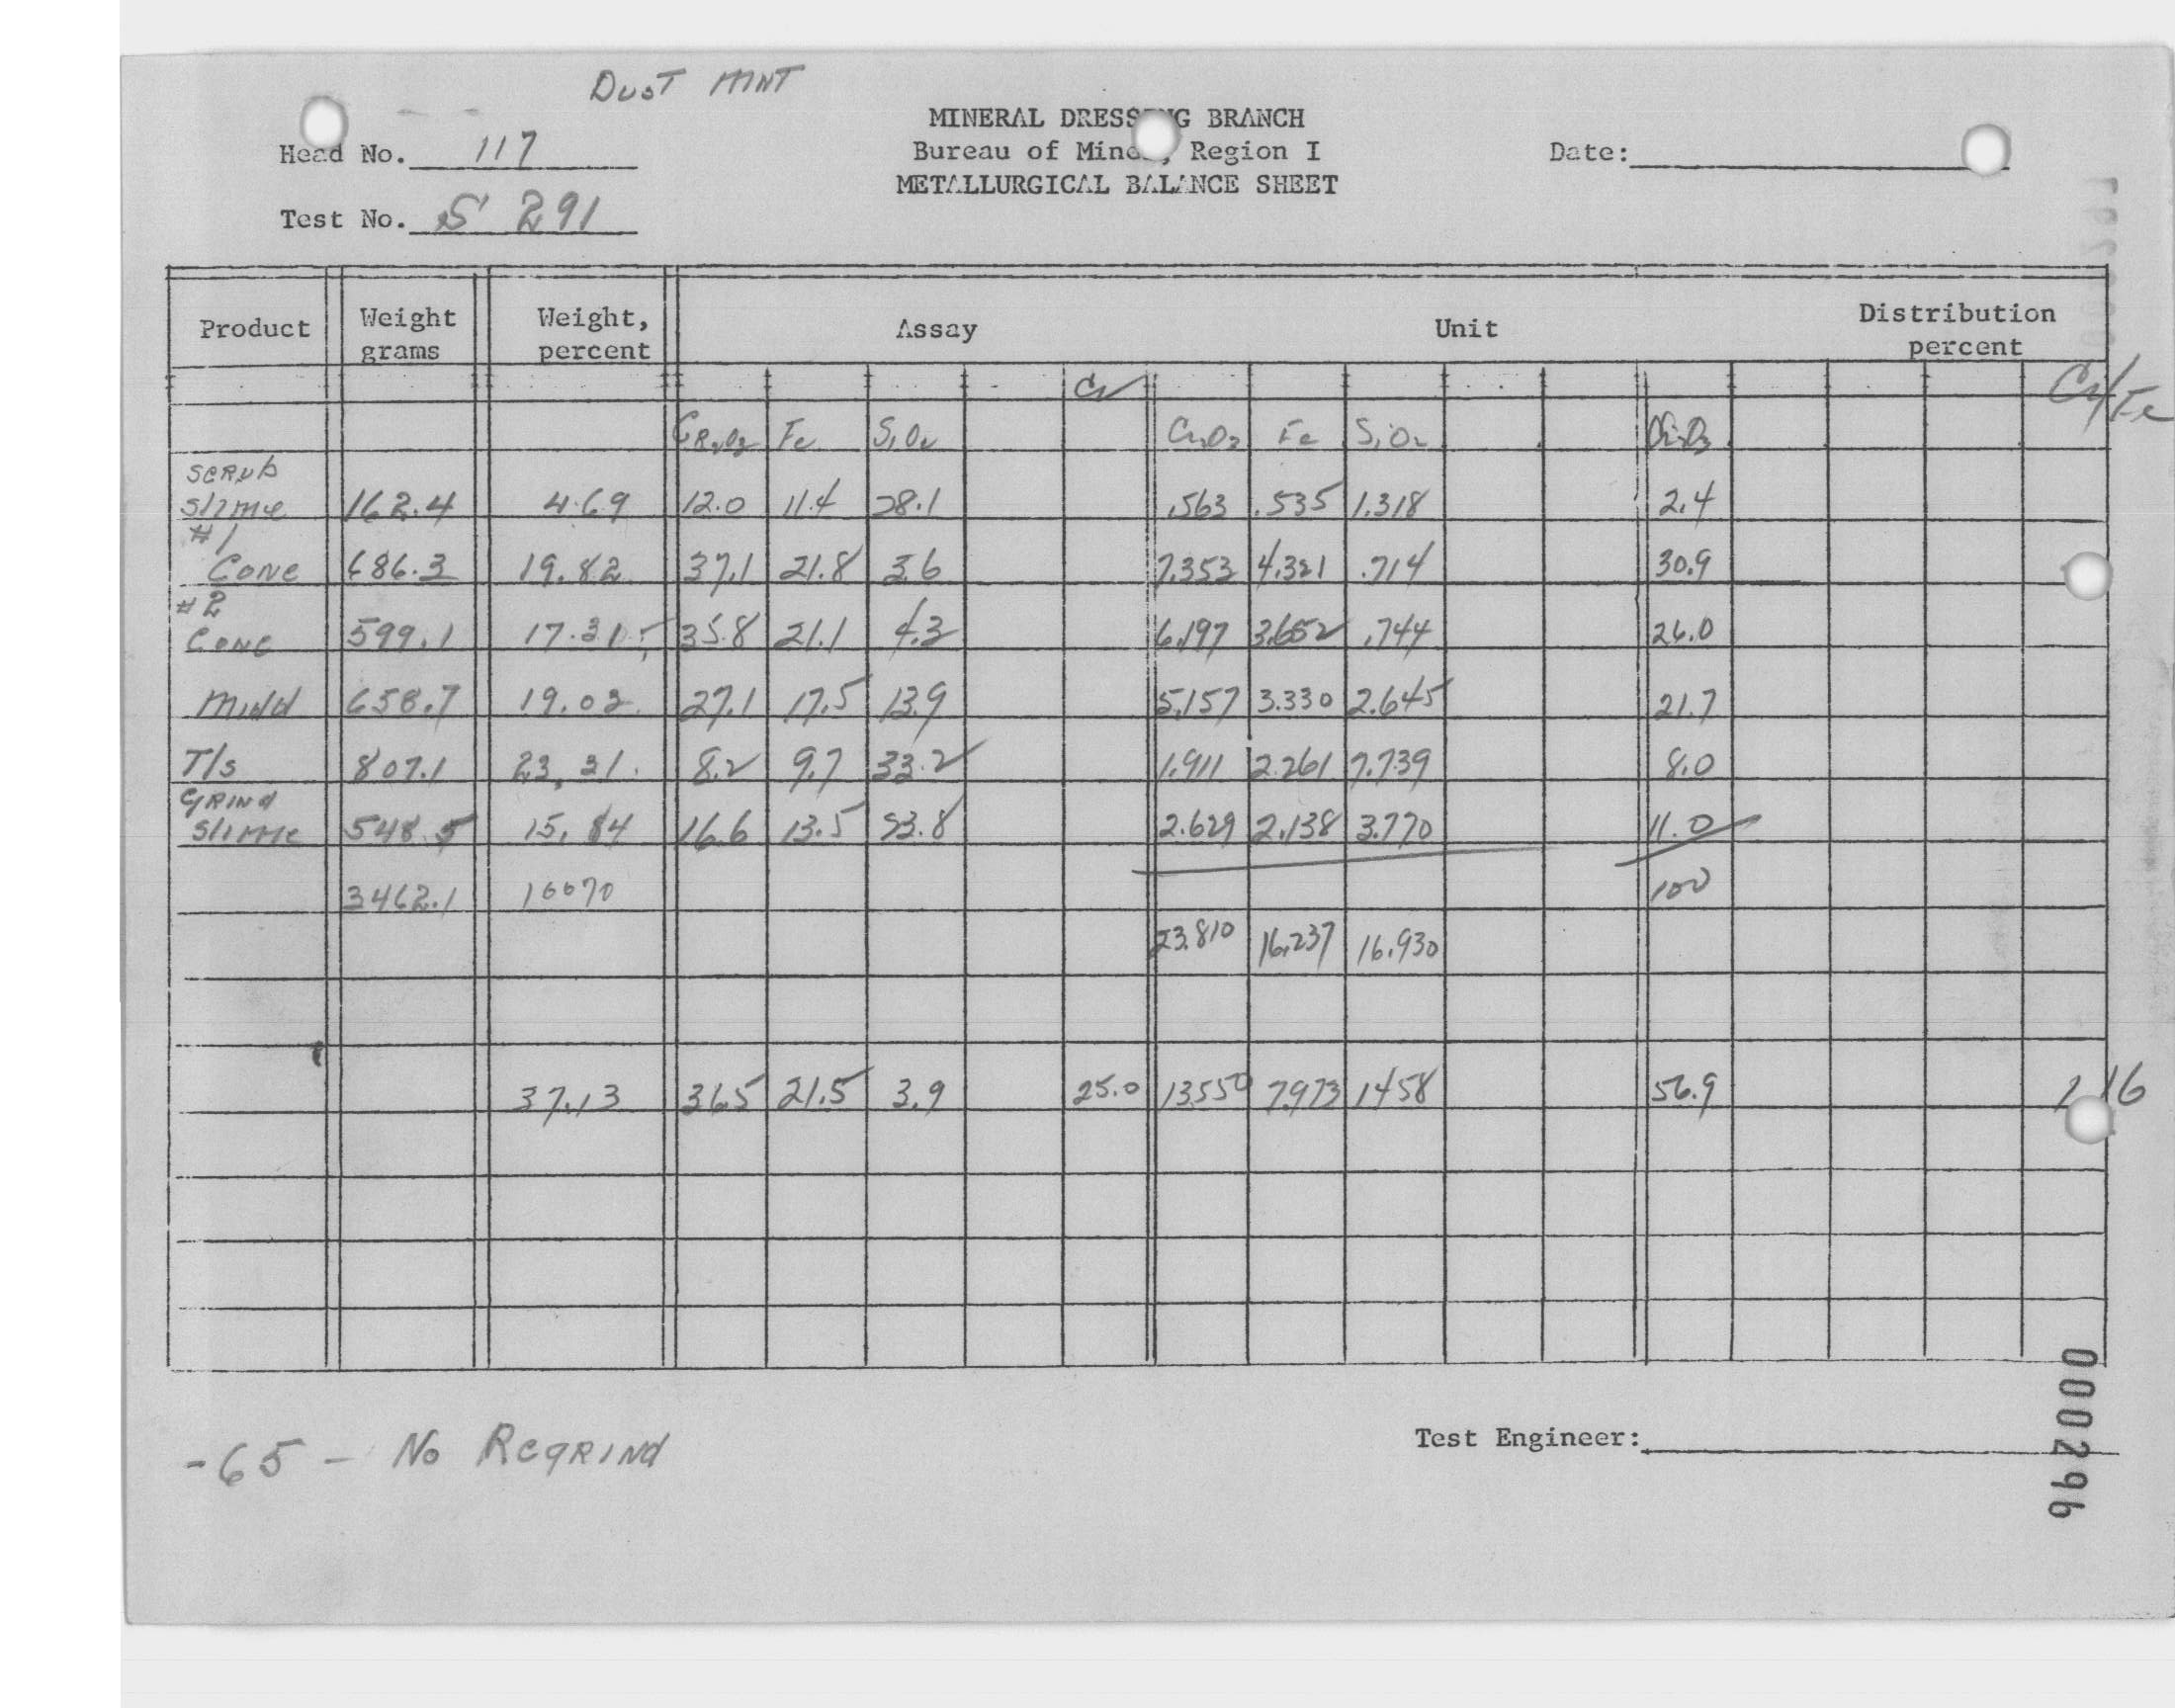 DUST MNT
MINERAL DRESSING BRANCH
Head No. 117 Bureau of Mines, Region I Date:
METALLURGICAL BALANCE SHEET
Test No. S 291
Product Weight grams Weight, percent Assay Unit Distribution percent
Cr Cr/Fe
CR2O3 Fe SiO2 Cr2O3 Fe SiO2 Cr2O3
SCRUb Slime 162.4 4.69 12.0 11.4 28.1 .563 .535 1.318 2.4
#1 Conc 686.3 19.82 37.1 21.8 3.6 7.353 4.321 .714 30.9
#2 Conc 599.1 17.31 35.8 21.1 4.3 6.197 3.652 .744 26.0
Midd 658.7 19.03 27.1 17.5 13.9 5.157 3.330 2.645 21.7
T/s 807.1 23.31 8.2 9.7 33.2 1.911 2.261 7.739 8.0
GRINd Slime 548.5 15.84 16.6 13.5 23.8 2.629 2.138 3.770 11.0
3462.1 100% 100
23.810 16.237 16.930
37.13 36.5 21.5 3.9 25.0 13.550 7.973 1458 56.9 1.16
Test Engineer:
-65 - No ReGRINd
000296